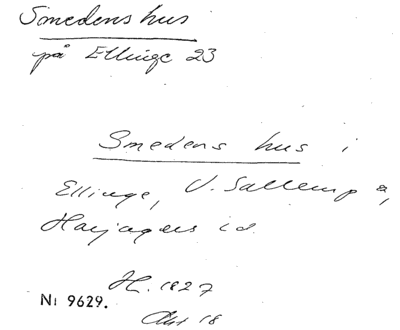 Smedens hus
på Ellinge 23
Smedens hus i
Ellinge, V. Sallerup s,
Harjagers hd.
H. 1827
Nr 9629.
Akt 18